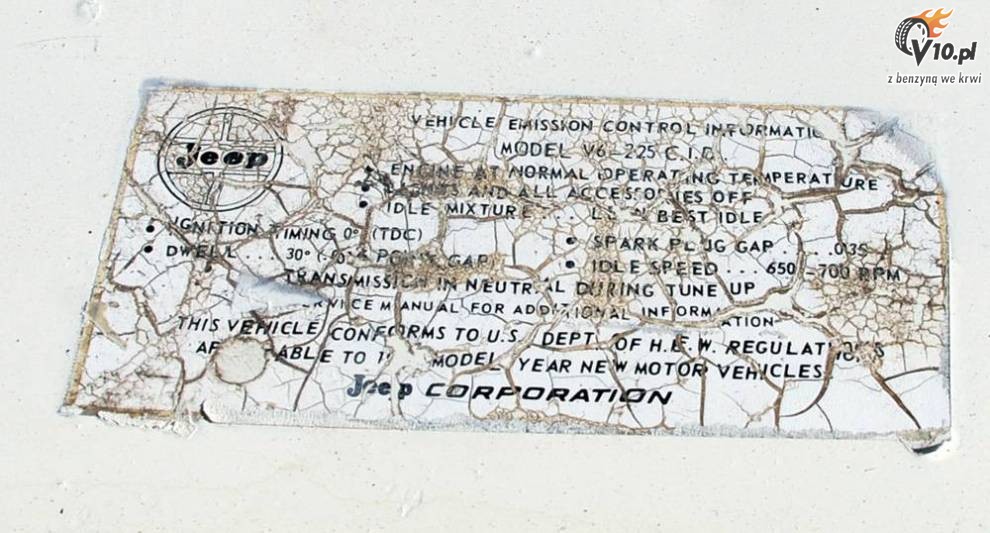 V10.pl
z benzyną we krwi
Jeep
VEHICLE EMISSION CONTROL INFORMATI
MODEL V6-225 C.I.D.
ENGINE AT NORMAL OPERATING TEMPERATURE
AND ALL ACCESSORIES OFF
• IDLE MIXTURE . . . BEST IDLE
• IGNITION TIMING 0° (TDC)
• SPARK PLUG GAP .035
• DWELL . . . 30° GAP
• IDLE SPEED . . . 650-700 RPM
TRANSMISSION IN NEUTRAL DURING TUNE UP
RVICE MANUAL FOR ADDITIONAL INFORMATION
THIS VEHICLE CONFORMS TO U.S. DEPT OF H.E.W. REGULATIONS
ABLE TO MODEL YEAR NEW MOTOR VEHICLES
Jeep CORPORATION